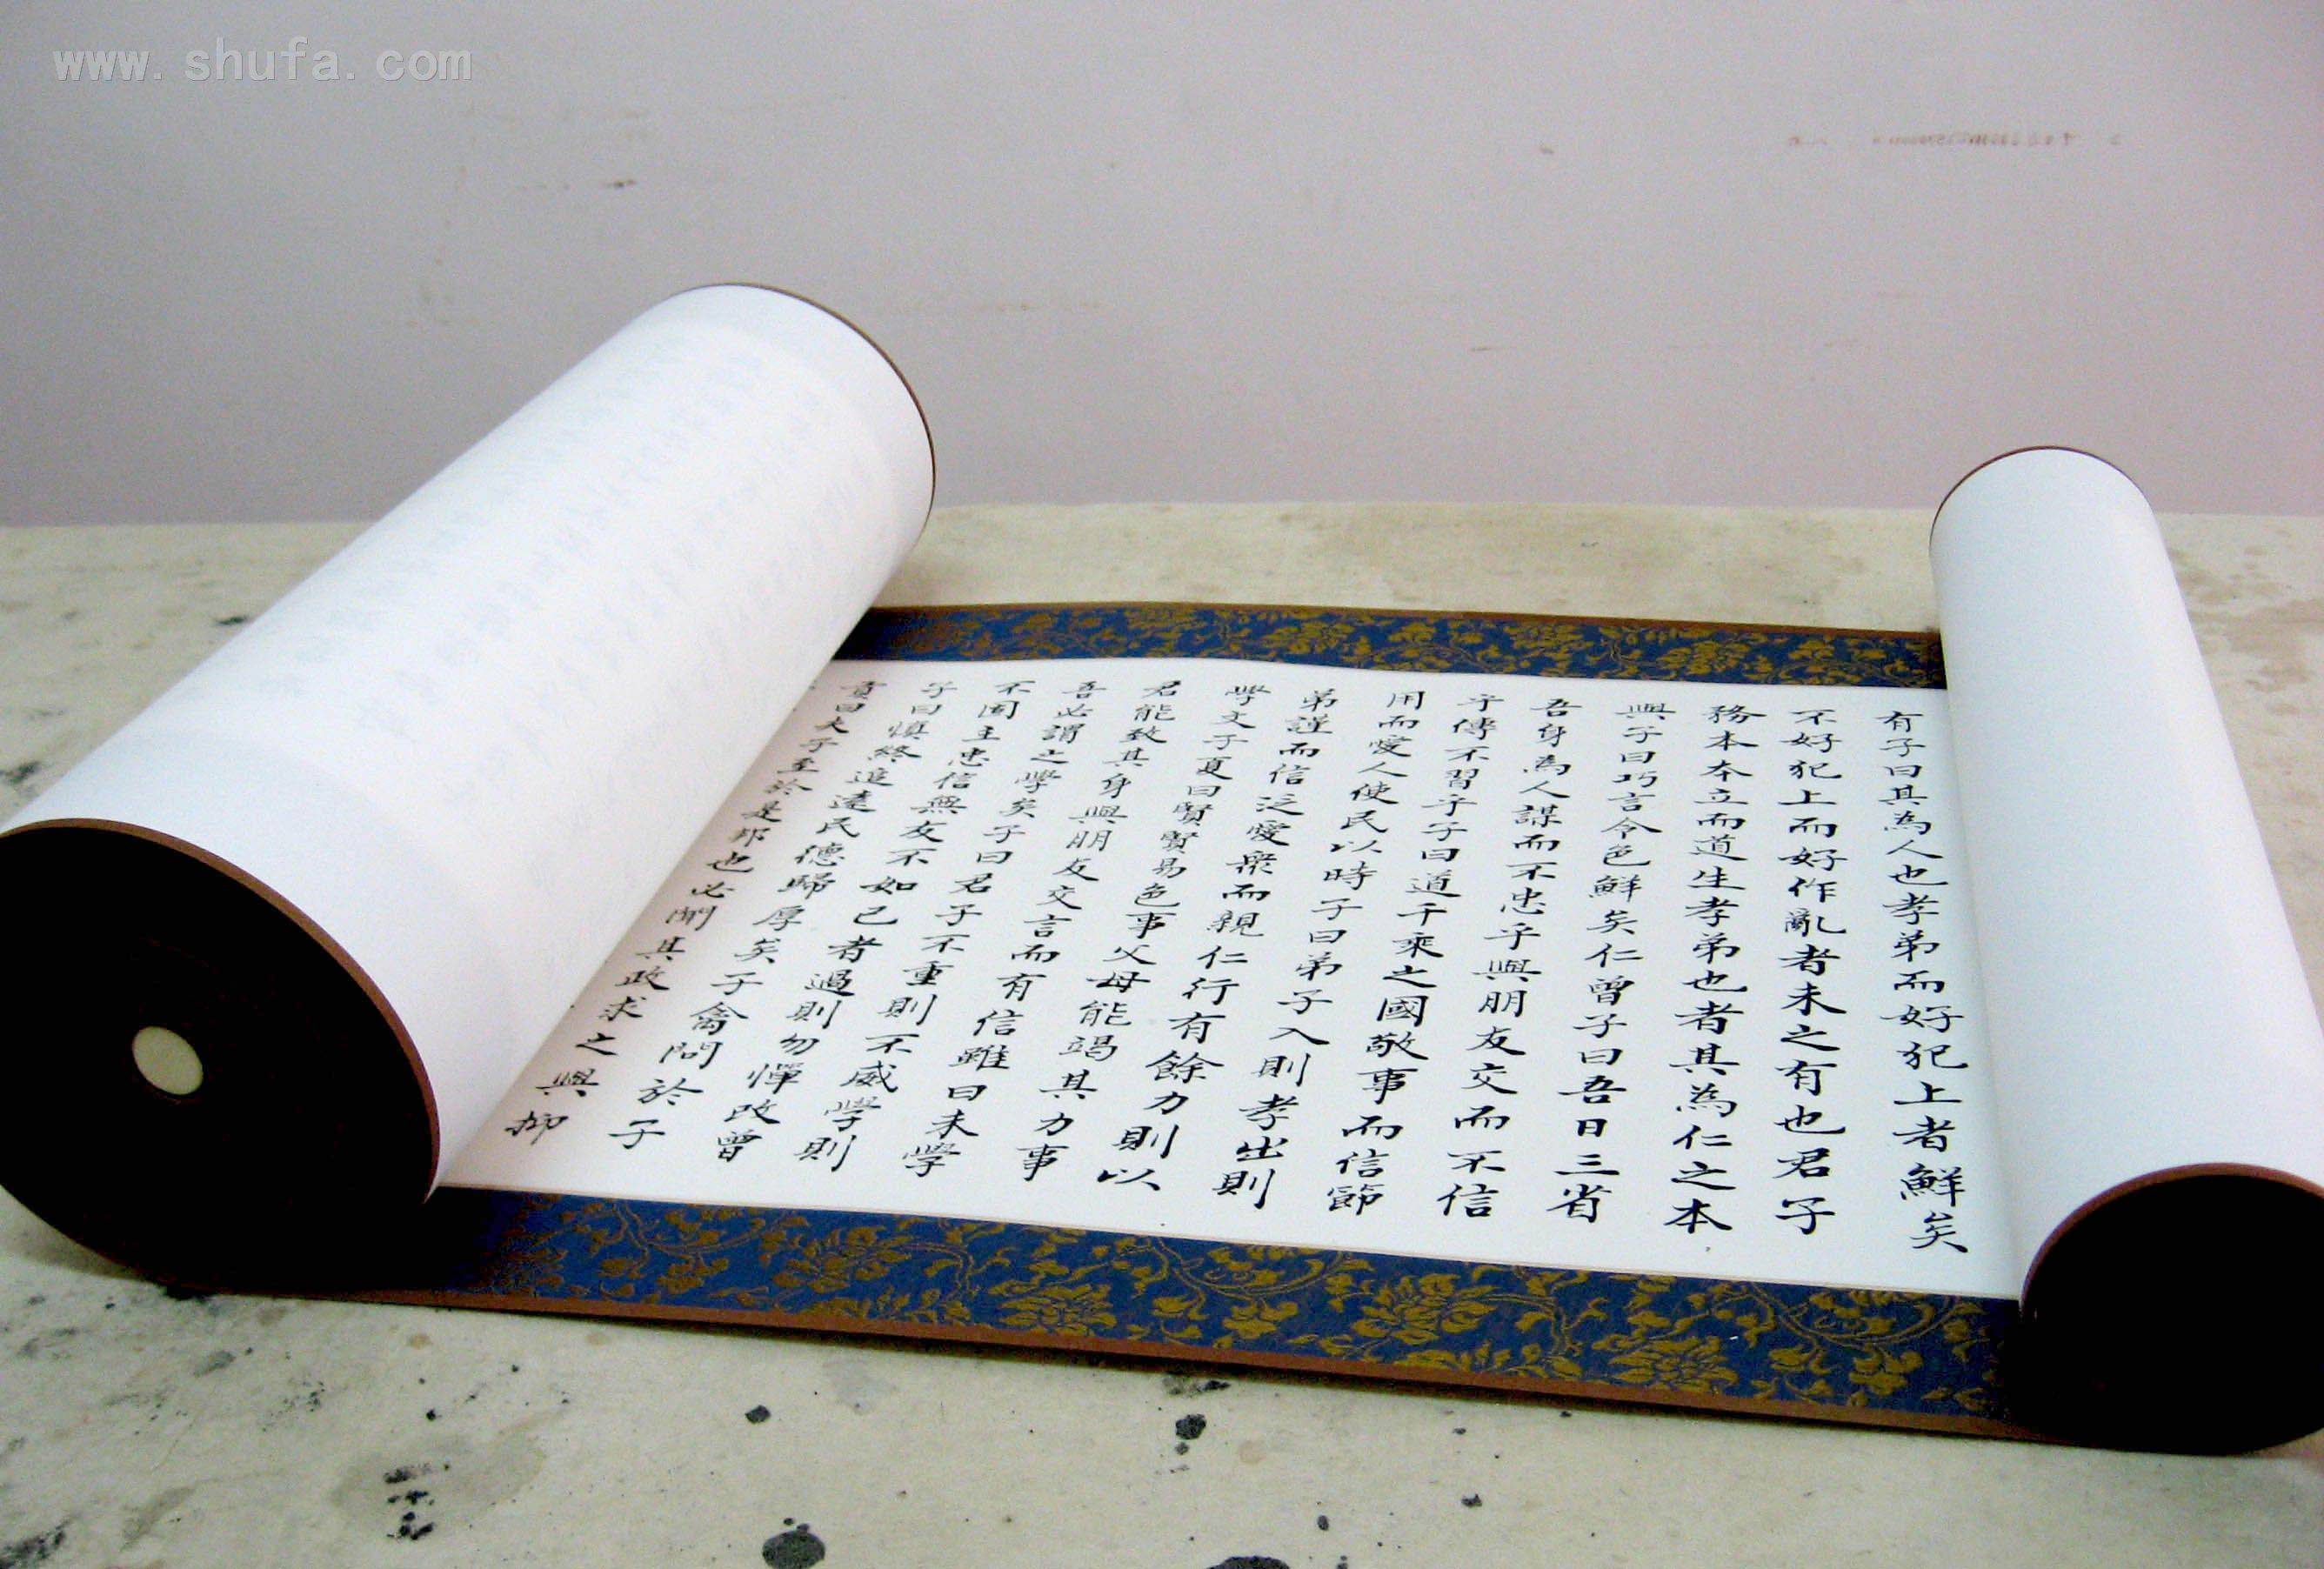 有子曰其為人也孝弟而好犯上者鮮矣
不好犯上而好作亂者未之有也君子
務本本立而道生孝弟也者其為仁之本
與子曰巧言令色鮮矣仁曾子曰吾日三省
吾身為人謀而不忠乎與朋友交而不信
乎傳不習乎子曰道千乘之國敬事而信節
用而愛人使民以時子曰弟子入則孝出則
弟謹而信泛愛衆而親仁行有餘力則以
學文子夏曰賢賢易色事父母能竭其力事
君能致其身與朋友交言而有信雖曰未學
吾必謂之學矣子曰君子不重則不威學則
不固主忠信無友不如己者過則勿憚改曾
子曰慎終追遠民德歸厚矣子禽問於子
貢曰夫子至於是邦也必聞其政求之與抑
www.shufa.com